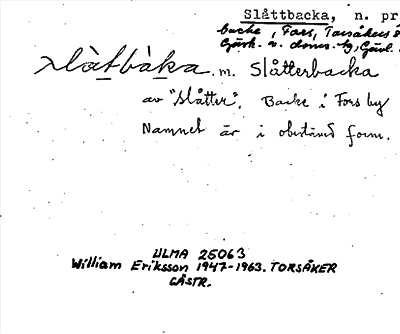 Slåttbacka, n. pr
backe, Fors, Torsåkers
Gävl.
slåtbàka m. Slåtterbacka
av "slåtter". Backe i Fors by
Namnet är i obestämd form.
ULMA 25063
William Eriksson 1947-1963. TORSÅKER
GÄSTR.